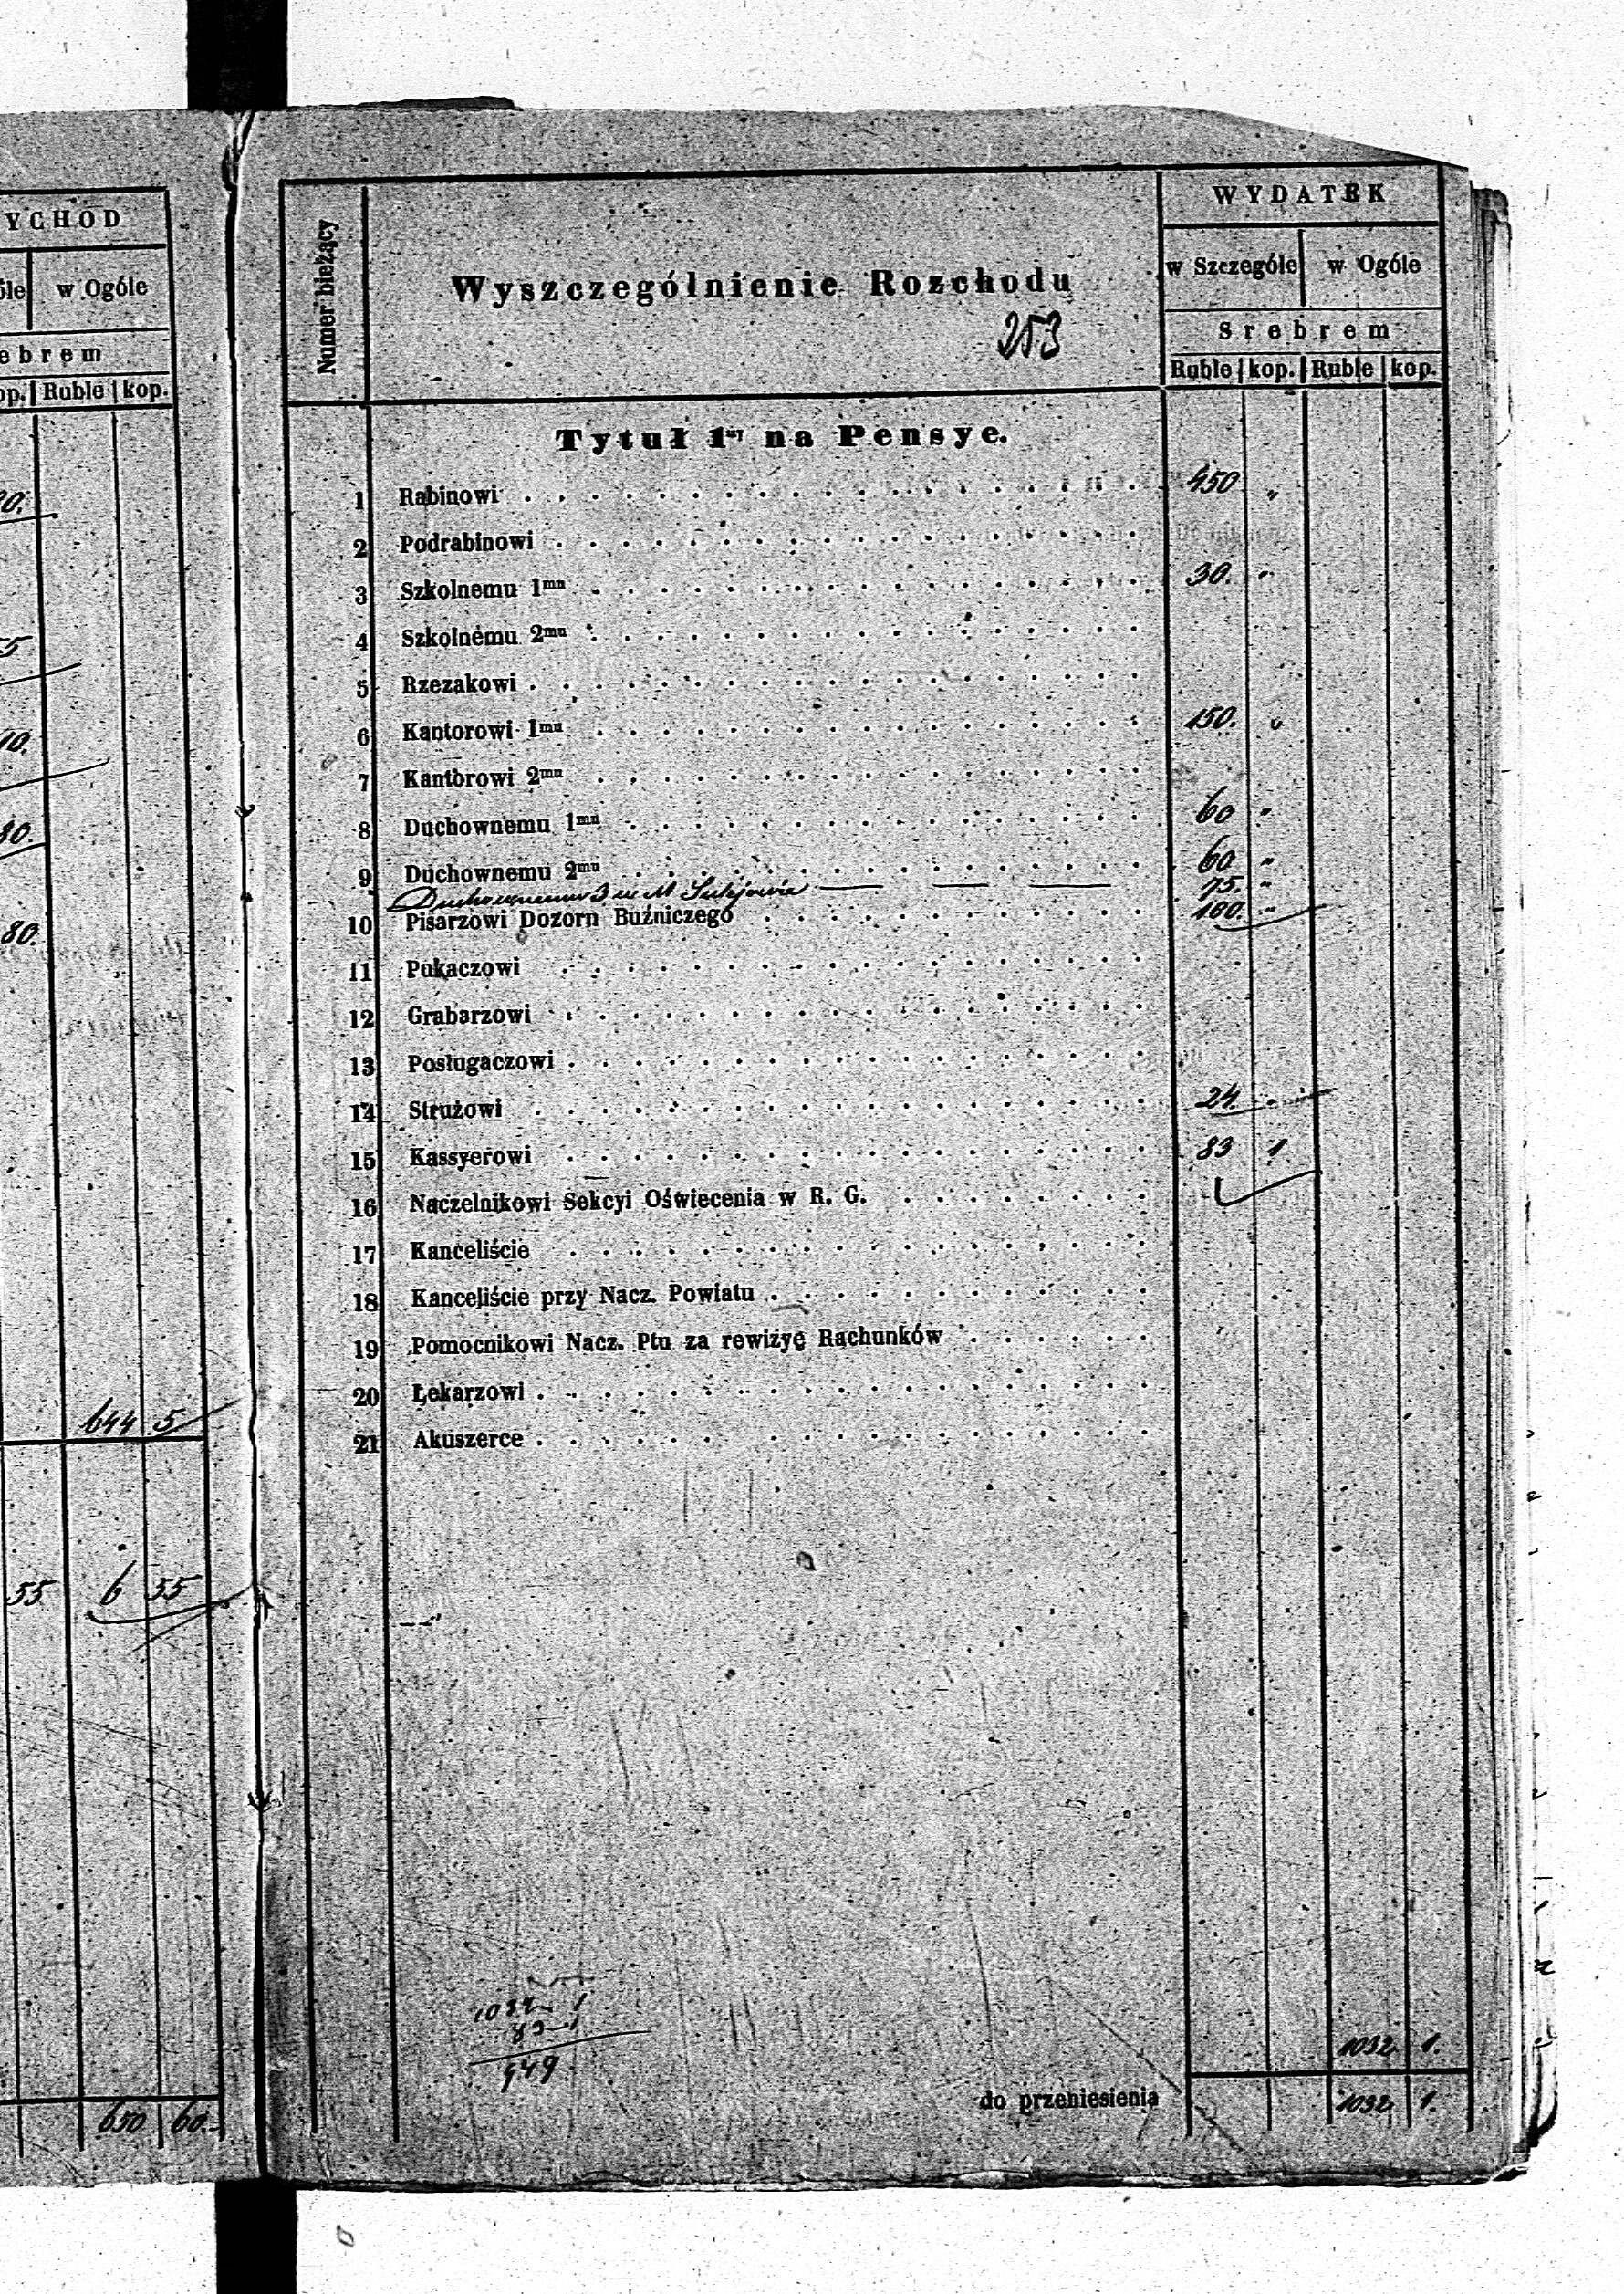 YCHOD
óle w Ogóle
ebrem
op. Ruble kop.
80.
55
10.
80.
80.
644 5
55 6 55
650 60.
Numer bieżący
Wyszczególnienie Rozchodu
253
WYDATEK
w Szczególe w Ogóle
Srebrem
Ruble kop. Ruble kop.
Tytuł 1ny na Pensye.
1 Rabinowi 450 "
2 Podrabinowi
3 Szkolnemu 1mu 30. "
4 Szkolnemu 2mu
5 Rzezakowi
6 Kantorowi 1mu 150. "
7 Kantorowi 2mu
8 Duchownemu 1mu 60 "
9 Duchownemu 2mu 60 "
Duchownemu 3 w M Sulejowie 75. "
10 Pisarzowi Dozoru Buźniczego 100. "
11 Pukaczowi
12 Grabarzowi
13 Posługaczowi
14 Strużowi 24. "
15 Kassyerowi 83 1
16 Naczelnikowi Sekcyi Oświecenia w R. G.
17 Kanceliście
18 Kanceliście przy Nacz. Powiatu
19 Pomocnikowi Nacz. Ptu za rewizyę Rachunków
20 Lekarzowi
21 Akuszerce
1032 - 1
83 - 1
949
1032 1.
do przeniesienia 1032 1.